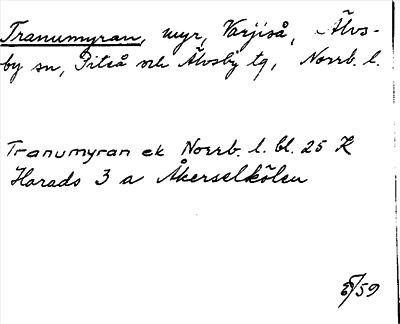 Tranumyran, myr, Varjiså, Älvs-
by sn, Piteå och Älvsby tg, Norrb. l.
Tranumyran ek Norrb. l. bl. 25 K
Harads 3 a Åkerselkölen
59